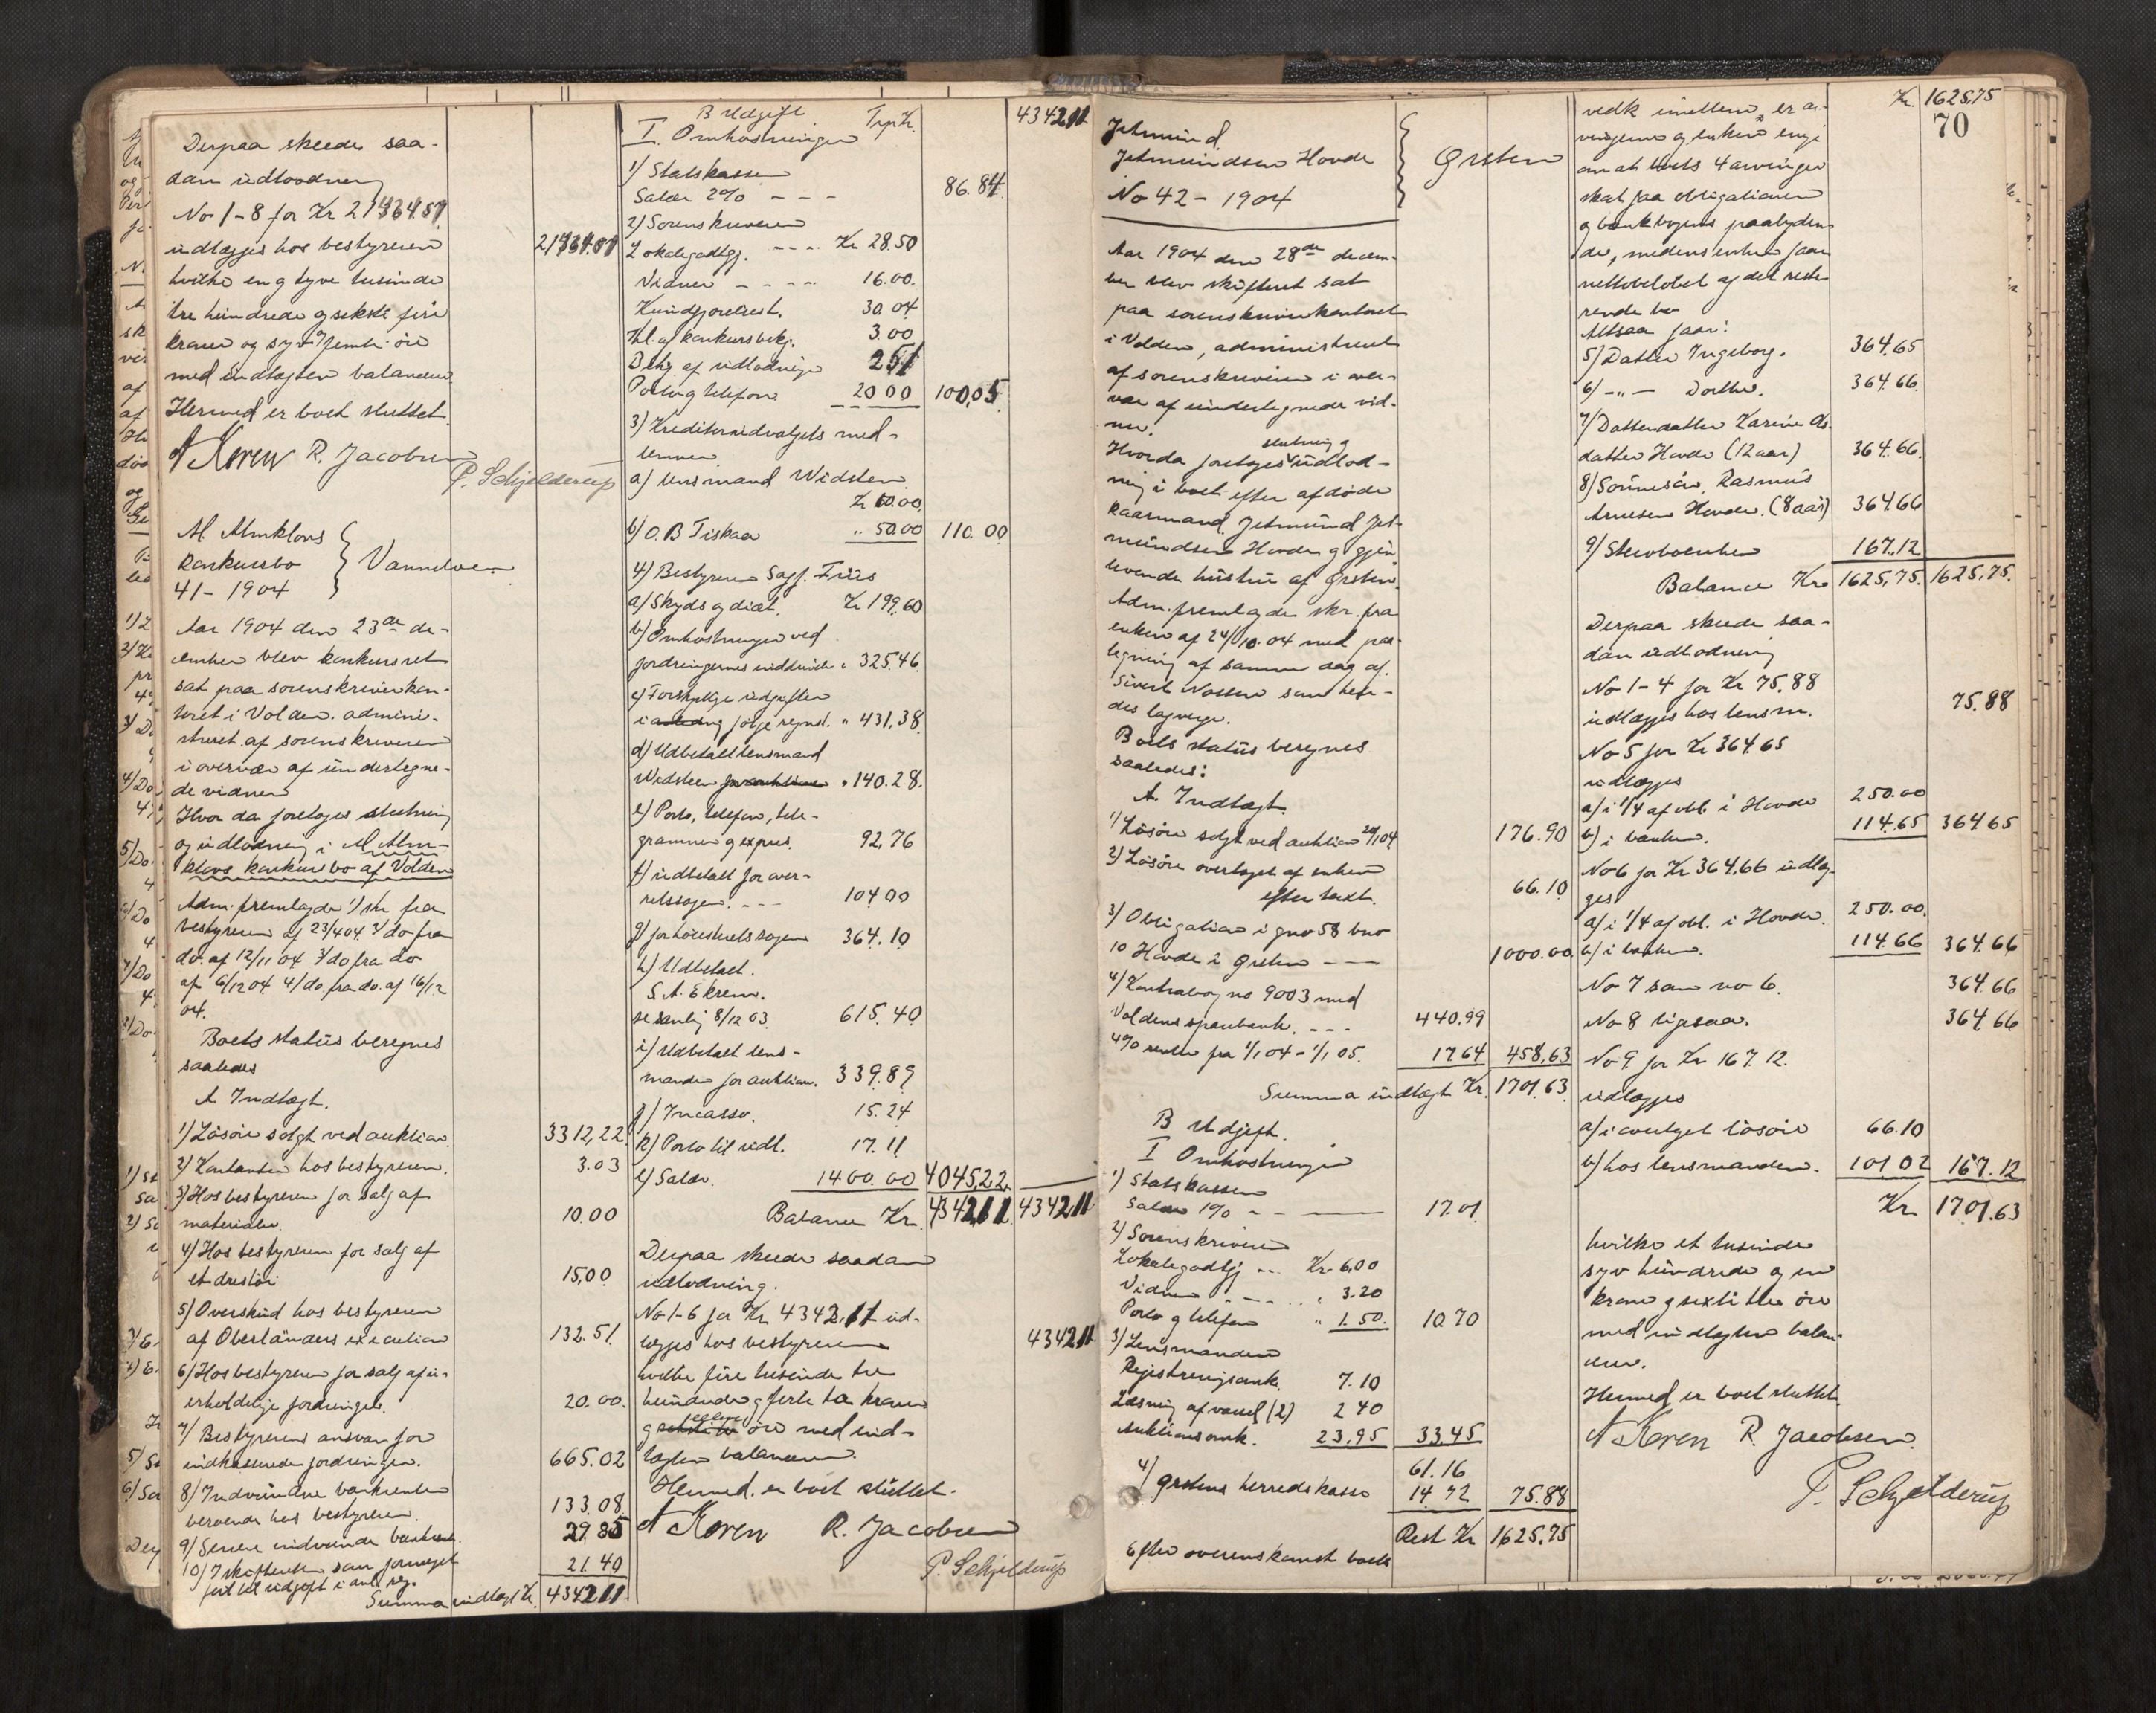 Derpaa skeede saa-
dan udlodning
No 1-8 for Kr 21364.57
udlægges hos bestyreren
21364.57
hvilke en og tyve tusinde
tre hundrede og seksti fire
kroner og syv og femti øre
med indtægten balancerer
Hermed er boet sluttet.
A Koren R. Jacobsen
P. Schjelderup
M. Almklovs
konkursbo
41-1904
Vannelven
Aar 1904 den 23de de-
cember blev konkursret
sat paa sorenskriverkon-
toret i Volden. admini-
streret af sorenskriveren
i overvær af undertegne-
de vidner
Hvor da foretoges slutning
og udlodning i M Alm-
klovs konkursbo af Volden
Adm. fremlagde 1/ skr fra
bestyreren af 23/4 04. 2/ do fra
do. af 12/11 04 3/ do fra do
af 6/12 04. 4/ do. fra do. af 16/12
04.
Boets status beregnes
saaledes
A Indtægt.
1) Løsøre solgt ved auktion. 3312,22
2) Kontanter hos bestyreren. 3.03
3) Hos bestyreren for salg af
materialer. 10.00
4) Hos bestyreren for salg af
et drestøi 15,00
5) Overskud hos bestyreren
af Oberländers execution 132.51
6) Hos bestyreren for salg af u-
erholdelige fordringer. 20.00.
7) Bestyrerens ansvar for
indkasserede fordringer. 665.02
8) Indvundne bankrenter
beroende hos bestyreren. 133.08
9) Senere indvundne bankrent. 29.85
10) I skifteretten som formeget
ført til udgift i anl. reg. 21.40
Summa indtægt Kr. 4342 11
B Udgift Trp Kr. 4342 11
I. Omkostninger
1) Statskassen
Salær 2% - - - 86.84
2) Sorenskriveren
Lokalegodtgj. - - - Kr 28.50
Vidner - - - - 16.00.
Kundgjørelsest. 30.04
Kl. af konkursbekj. 3.00
Bekg af udlodninge 2 51
Porto og telefon 20 00 100,05
3) Kreditorudvalgets med-
lemmer
a) lensmand Widsten
Kr 60.00.
b) O. B Fiskaa " 50.00 110.00
4) Bestyreren Sagf. Friis
a) Skyds og diæt. Kr 199.60
b) Omkostninger ved
fordringernes inddrivelse " 325.46
c) Forskjellige udgifter
i anledng følge regnsk. " 431,38
d) Udbetalt lensmand
Widsteen for auktioner " 140.28.
e) Porto, telefon, tele-
grammer og expres. 92,76
f) udbetalt for over-
retssagen. - - - 104 00
g) for høiesteretssagen 364.10
h) Udbetalt.
S. A. Ekrem.
se samling 8/12 03. 615.40
i) Udbetalt lens-
manden for auktion. 339.89
j) Incasso. 15.24
k) Porto til udl. 17.11
l) Salær. 1400.00 4045,22.
Balance Kr. 4342,11 4342,11
Derpaa skeede saadan
udlodning.
No 1-6 for Kr 4342,11 ud-
lægges hos bestyreren 4342 11
hvilke fire tusinde tre
hundrede og førti to kroner
og elleve øre med ind-
tægten balancerer.
Hermed er boet sluttet.
A Koren R. Jacobsen
P. Schjelderup
Jetmund
Jetmundsen Hovde
No 42 - 1904
Ørsten
Aar 1904 den 28de decem-
ber blev skifteret sat
paa sorenskriverkontoret
i Volden, administreret
af sorenskriveren i over-
vær af undertegnede vid-
ner.
Hvorda foretoges slutning og udlod-
ning i boet efter afdøde
kaarmand Jetmund Jet-
mundsen Hovde og gjen-
levende hustru af Ørsten.
Adm. fremlagde skr. fra
enken af 24/10 04 med paa-
tegning af samme dag af
Sivert Nossen som hen-
des lagverge.
Boets status beregnes
saaledes:
A. Indtægt.
1) Løsøre solgt ved auktion 29/1 04 176.90
2) Løsøre overtaget af enken
efter taxt. 66.10
3) Obligation i gno 58 bno
10 Hovde i Ørsten - - - 1000.00
4) Kontrabog no 9003 med
Voldens sparebank. - - - 440.99
4% renter fra 1/1 04 - 1/1 05. 17.64 458,63
Summa indtægt Kr. 1701.63
B Udgift.
I Omkostninger
1) Statskassen
Salær 1% - - 17.01
2) Sorenskriveren
Lokalegodtgj ... Kr 6,00
Vidner - - - " 3.20
Porto og telefon " 1.50. 10.70
3) Lensmanden
Registreringsomk. 7.10
Læsning af varsel (2) 2 40
Auktionsomk. 23,95 33,45
61.16
4) Ørstens herredskasse 14.72 75.88
Rest Kr 1625.75
Efter overenskomst boets
Kr. 1625,75
70
vedk imellem, er ar-
vingerne og enken enige
om at boets 4 arvinger
skal faa obligationen
og bankbogens paalydende
de, medens enken faar
nettobeløbet af det reste-
rende bo
Altsaa faar:
5) Datter Ingeborg. 364.65
6) -"- Dorthe. 364.66.
7) Datterdatter Karine As-
datter Hovde (12 aar) 364.66.
8) Sønnesøn, Rasmus
Arnesen Hovde. (8 aar) 364.66
9) Stervboenken 167.12
Balance Kr 1625.75. 1625,75.
Derpaa skeede saa-
dan udlodning
No 1-4 for Kr 75.88
udlægges hos lensm. 75.88
No 5 for Kr 364.65
udlægges
a) i 1/4 af obl. i Hovde 250.00
b) i banken. 114.65 364 65
No 6 for Kr 364.66 udlæg-
ges
a) i 1/4 af obl. i Hovde. 250.00.
b) i banken. 114.66 364.66
No 7 som no 6. 364.66
No 8 ligesaa. 364 66
No 9 for Kr 167.12.
udlægges
a) i overtget løsøre 66.10
b) hos lensmanden. 101 02 167.12
Kr 1701.63
hvilke et tusinde
syv hundrede og en
krone og sexti tre øre
med indtægten balan-
cerer.
Hermed er boet sluttet.
A Koren R. Jacobsen.
P. Schjelderup